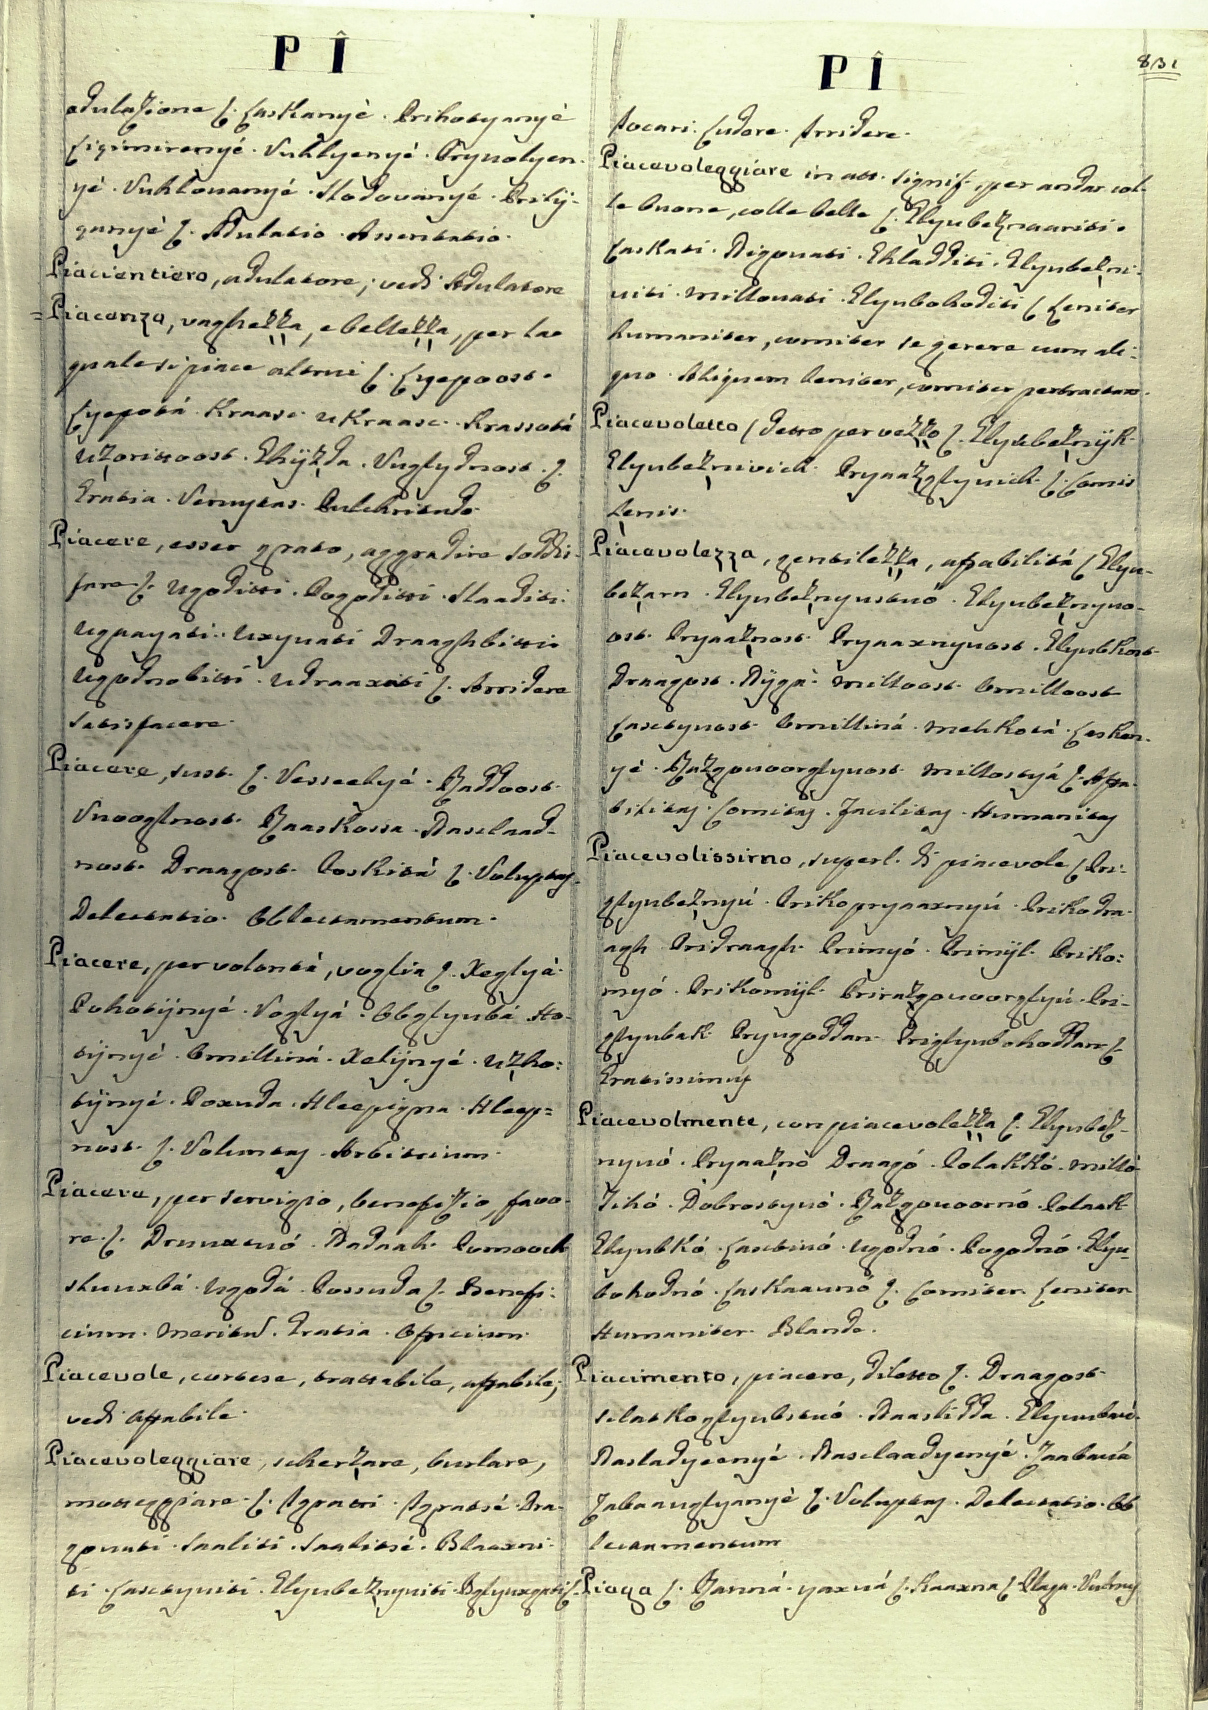 PÎ
adulazione ζ. Laskanyè. Prihotyanyè
Ligimirenyé. Vuhlyenyé. Pryvolyen-
yé. Vuhlovanyé. Slodovanyé. Prily-
ganyè ζ. Adulatio. Assentatio.
Piacientiero, adulatore; vedi Adulatore
= Piacenza, vaghezza, e bellezza, per la
quale si piace altrui ζ. Lyepoost.
Lyepotá. Kraase. ukraase. Krassotá
uzorittoost. Ghyzda. Vuglydnost. ζ.
Gratia. Venustas. Pulchritudo.
Piacere, esser grato, aggradire soddis-
fare ζ. ugoditti. Pogoditti. Slaaditi.
ugvayati. uxyvati Draaghbitti
ugodnobitti. udraaxiti ζ. Arridere
satisfacere.
Piacere, sust. ζ. Vesseelyé. Raddoost.
Vnooglnost. Raaskossa. Naslaad-
nost. Draagost. Poskitá ζ. Voluptas.
Delectatio. Oblectamentum.
Piacere, per volontà, voglia ζ. Xeglyá.
Pohotijnyé. Voglyá. Obglyubá Ho-
tijnyé. Omilliná. Xelijnyé. uzho:
tijnyé. Poxuda. Hleepigna. Hleep=
nost. ζ. Voluntas. Arbitrium.
Piacere, per servigio, benefizio, favo-
re. ζ. Druxtvó. Nadaak. Pomooch
sluuxbá. ugodá. Possuda ζ. Benefi:
cium. Meritus. Gratia. Officium.
Piacevole, cortese, trattabile, affabile;
vedi Affabile.
Piacevoleggiare, scherzare, burlare,
motteggiare. ζ. Igratti. Igratsé. Dra-
govati. Saaliti. Saalitsé. Blaaxni-
ti. Lasctyviti. Glyubeznyviti. Oglyuxgati ζ.
PÎ
831
Iocari. Ludere. Arridere.
Piacevoleggiare in att. signif. per andar col-
le buone, colle belle ζ. Glyubeznaariti.
Laskati. Nigovati. Ehladditi. Glyubezni-
viti. Millovati. Glyubohoditi ζ. Leniter
humaniter, comiter se gerere cum ali-
quo. Aliquem leniter, comiter pertractare.
Piacevoletto / detto per vezzo ζ. Glyubeznijk.
Glyubeznivich. Pryaazglyvich. ζ. Comis
Lenis.
Piacevolezza, gentilezza, affabilità ζ. Glyu-
bezarn. Glyubeznyvstvó. Glyubeznyvo-
ost. Pryaaznost. Pryaaxnyvost. Glyubkost.
Draagost. Nijgá. Milloost. Omilloost
Lasctyvost. Omilliná. Mehkotá. Lasken-
yé. Razgovoorglyvost. Millostyá ζ. Affa-
bilitas. Comitas. Facilitas. Humanitas
Piacevolissimo, superl. di piacevole ζ. Pri-
glyubeznyú. Prikopryaaxnyú. Prikodra-
agh. Pridraagh. Primyó. Primijl. Priko:
myó. Prikomijl. Prirazgovoorglyú. Pri-
glyubak. Pryugoddan. Priglyubohoddan ζ.
Gratissimus
Piacevolmente, con piacevolezza ζ. Glyubez-
nyvó. Pryaaznó Draagó. Polakkó. Milló
Tihó. Dobrostyvó. Razgovoornó. Polaak
Glyubkó. Lasctivó. ugodnó. Pogodnó. Glyu-
bohodnó. Laskaavnó ζ. Comiter. Leniter
Humaniter. Blande.
Piacimento, piacere, diletto ζ. Draagost.
silatkoglyubstvó. Naaslidda. Glyuubavé.
Nasladyeenyé. Naselaadyenyé. Zaabavá
Zabaauglyanyè ζ. Voluptas. Delectatio. Ob
lectamentum
Piaga ζ. Ranná. yaxvá ζ. Kaaxna ζ. Plaga. Vulnus